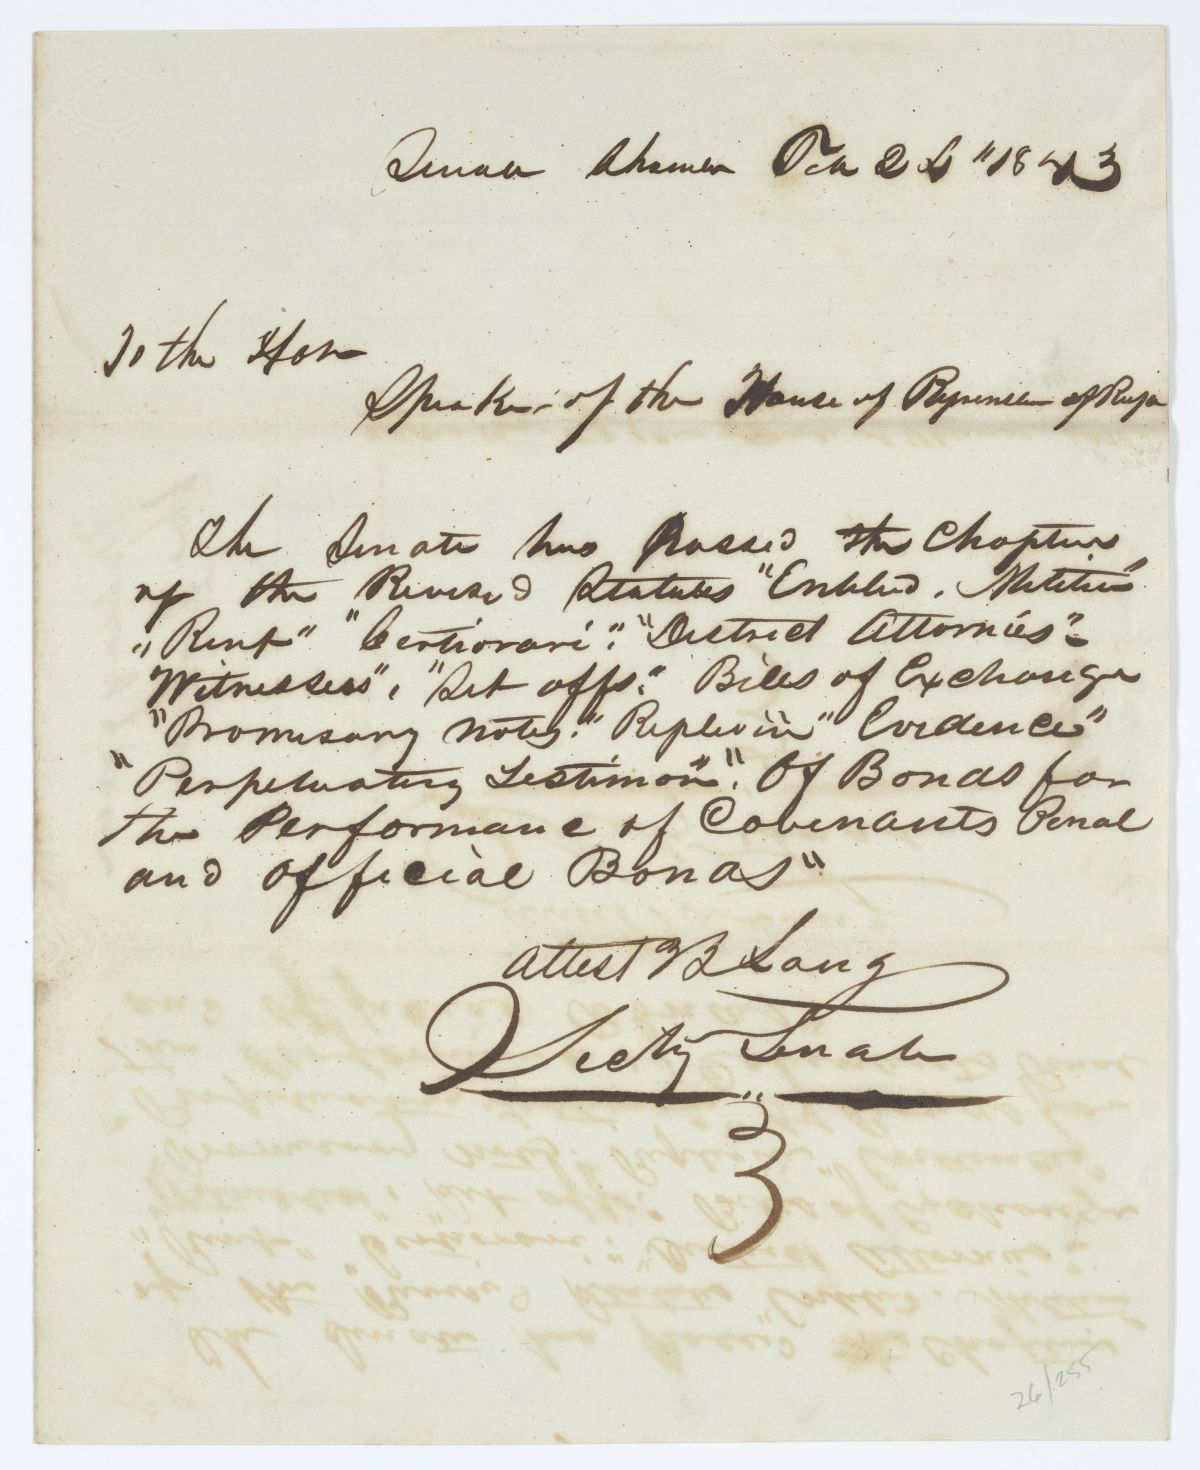 Senate Chamber Feb 24" 1843
To the Hon
Speaker of the House of Represen of Repre
The Senate has Passed the Chapters
of the Revised Statutes "Entitled, Militia"
"Rent" "Certiorari": "District Attornies":
Witnesses", "Set offs." Bills of Exchange
"Promisary notes." Replevin" Evidence"
"Perpetuating Testimon": Of Bonds for
the Performance of Covenants Penal
and official Bonds"
Attest B Lang
Secty Senate
26/255